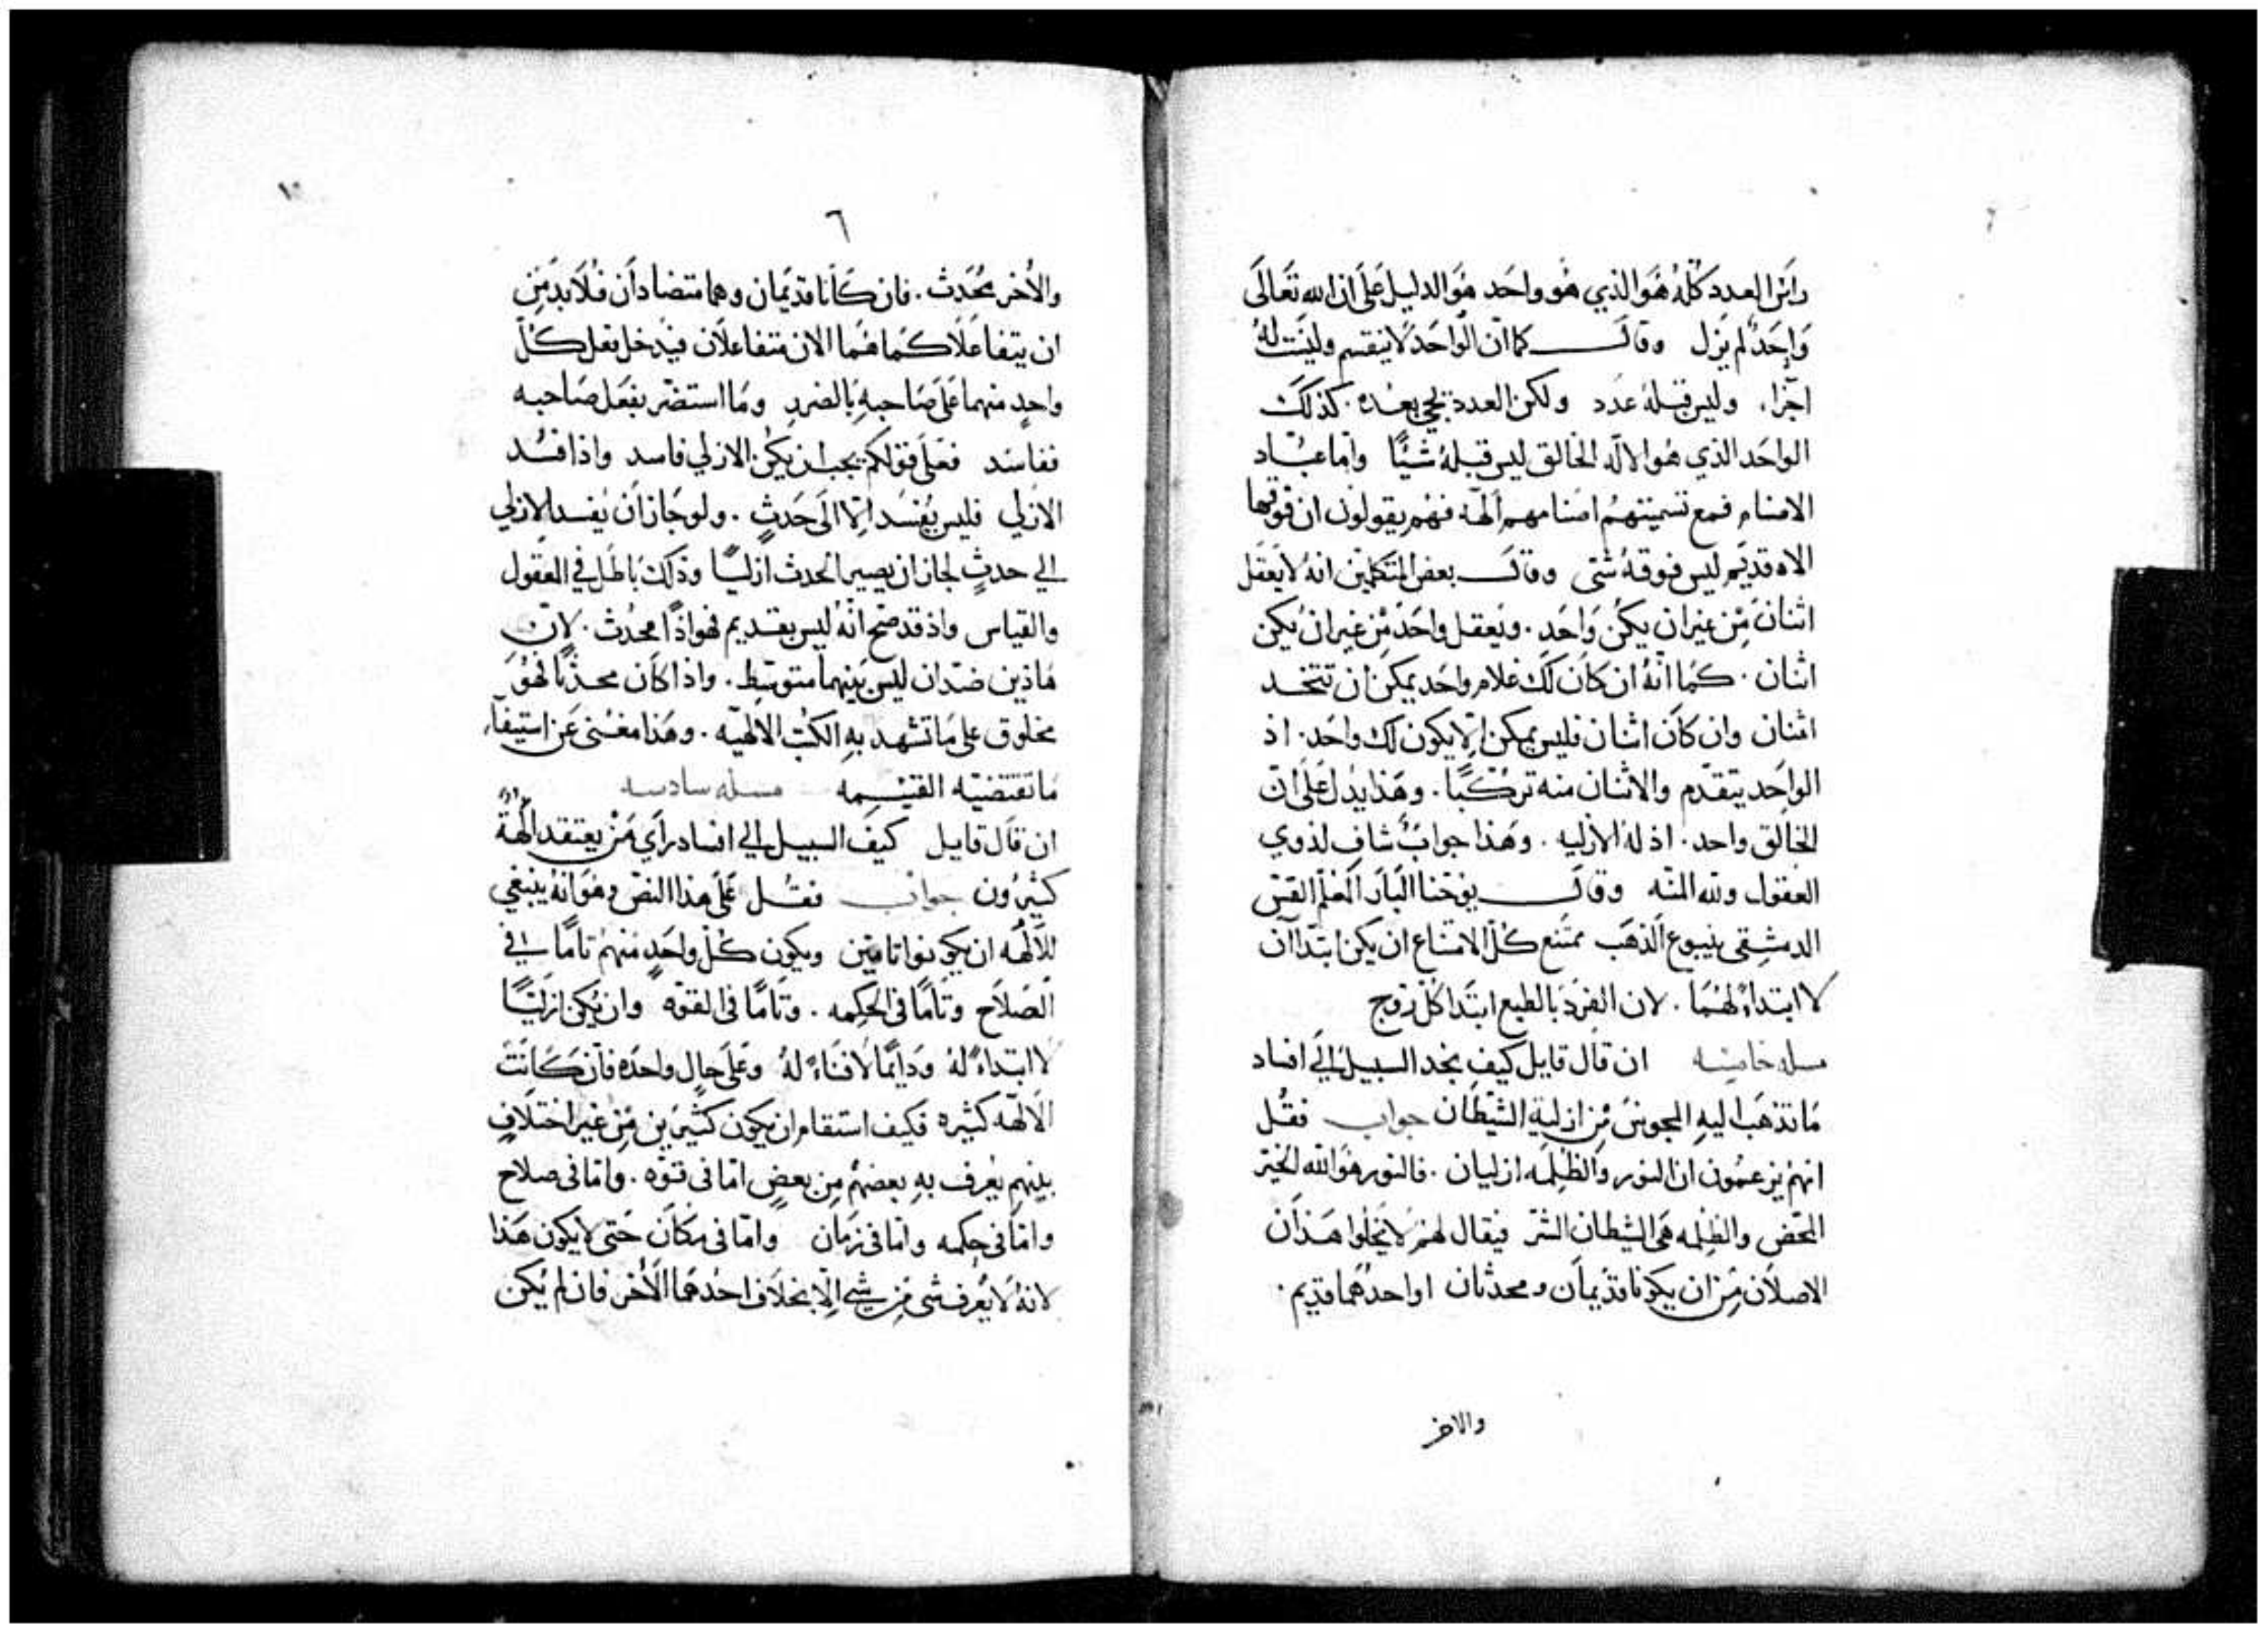 راس العدد كله هو الذي هو واحد هو الدليل على ان الله تعالى
واحد لم يزل وقال كما ان الواحد لا ينقسم وليست له
اجزاء. وليس قبله عدد ولكن العدد يجي بعده. كذلك
الواحد الذي هو الاله الخالق ليس قبله شيئًا واما عباد
الاصنام فمع تسميتهم اصنامهم الهة فهم يقولون ان فوقها
الاه قديم ليس فوقه شي وقال بعض المتكلمين انه لا يعقل
اثنان من غير ان يكن واحد. ويعقل واحد من غير ان يكن
اثنان. كما انه ان كان لك غلام واحد يمكن ان تتخد
اثنان وان كان اثنان فليس يمكن الا يكون لك واحد. اذ
الواحد يتقدم والاثنان منه تركبا. وهذا يدل على ان
الخالق واحد. اذ له الازليه. وهذا جواب شاف لذوي
العقول ولله المنه وقال يوحنا البار المعلم القس
الدمشقى ينبوع الذهب ممتنع كل الامتناع ان يكن ابتداآن
لا ابتداء لهما. لان الفرد بالطبع ابتدا كل زوج
مسله خامسه ان قال قايل كيف نجد السبيل الى افساد
ما تذهب اليه المجوس من ازلية الشيطان جواب فقل
انهم يزعمون ان النور والظلمه ازليان. فالنور هو الله الخير
المحض والظلمه هى الشيطان الشر فيقال لهم لا يخلوا هذان
الاصلان من ان يكونا قديمان ومحدثان او احدهما قديم.
والاخر
١٠
٦
والأخر محدث. فان كانا قديمان وهما متضادان فلا بد من
ان يتفاعلا كما هما الان متفاعلان فيدخل فعل كل
واحد منهما على صاحبه بالضرر وما استضر بفعل صاحبه
ففاسد فعلى قولكم يجب ان يكن الازلي فاسد واذا فسد
الازلي فليس يفسد الا الى حدث. ولو جاز ان يفسد الازلي
الي حدث لجاز ان يصير الحدث ازليًا وذلك باطل في العقول
والقياس واذ قد صح انه ليس بقديم فهو اذًا محدث. لان
هاذين ضدان ليس بينهما متوسط. واذا كان محدثًا فهو
مخلوق على ما تشهد به الكتب الالهيه. وهذا مغنى عن استيفاء
ما تقتضيه القسمه مسله سادسه
ان قال قايل كيف السبيل الي افساد راي من يعتقد الهة
كثيرون جواب فقل على هذا النص وهو انه ينبغي
للالهه ان يكونوا تامين ويكون كل واحد منهم تامًا في
الصلاح وتامًا فى الحكمه. وتامًا فى القوه وان يكن ازليًا
لا ابتداء له ودايمًا لا فناء له وعلى حال واحده فان كانت
الالهه كثيره فكيف استقام ان يكون كثيرين من غير اختلاف
بينهم يعرف به بعضهم من بعض اما فى قوه. واما فى صلاح
واما فى حكمه واما فى زمان واما فى مكان حتى لا يكون هذا
لانه لا يعرف شى من شي الا بخلاف احدهما الأخر فان لم يكن